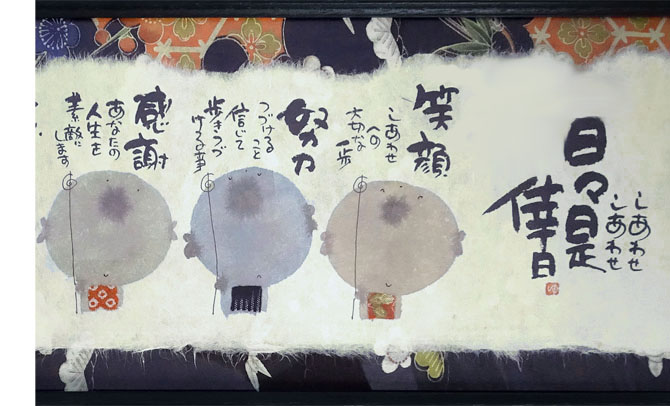 しあわせ
しあわせ
日々是
倖日
笑顔
しあわせ
への
大切な
一歩
努力
つづける
こと
信じて
歩きつづ
ける事
感謝
あなたの
人生を
素敵に
します